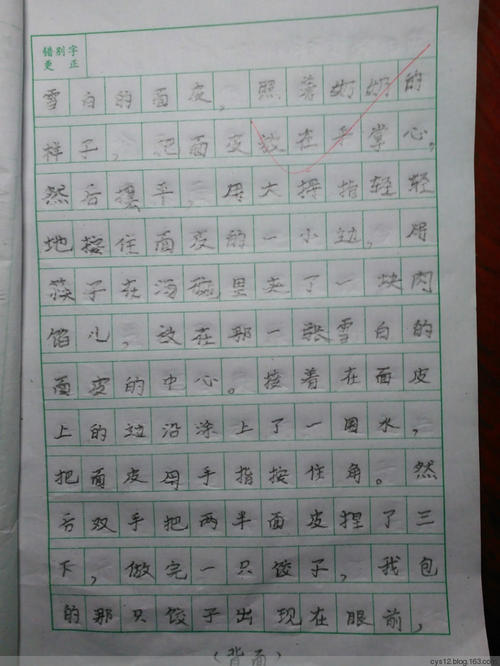 错别字
更正
雪白的面皮，照着奶奶的
样子，把面皮放在手掌心。
然后摆平，用大拇指轻轻
地按住面皮的一小边，用
筷子在汤瓶里夹了一块肉
馅儿，放在那一张雪白的
面皮的中心。接着在面皮
上的边沿涂上了一圈水，
把面皮用手指按住角。然
后双手把两半面皮捏了三
下，做完一只饺子，我包
的那只饺子出现在眼前，
（背面）
cys12.blog.163.com